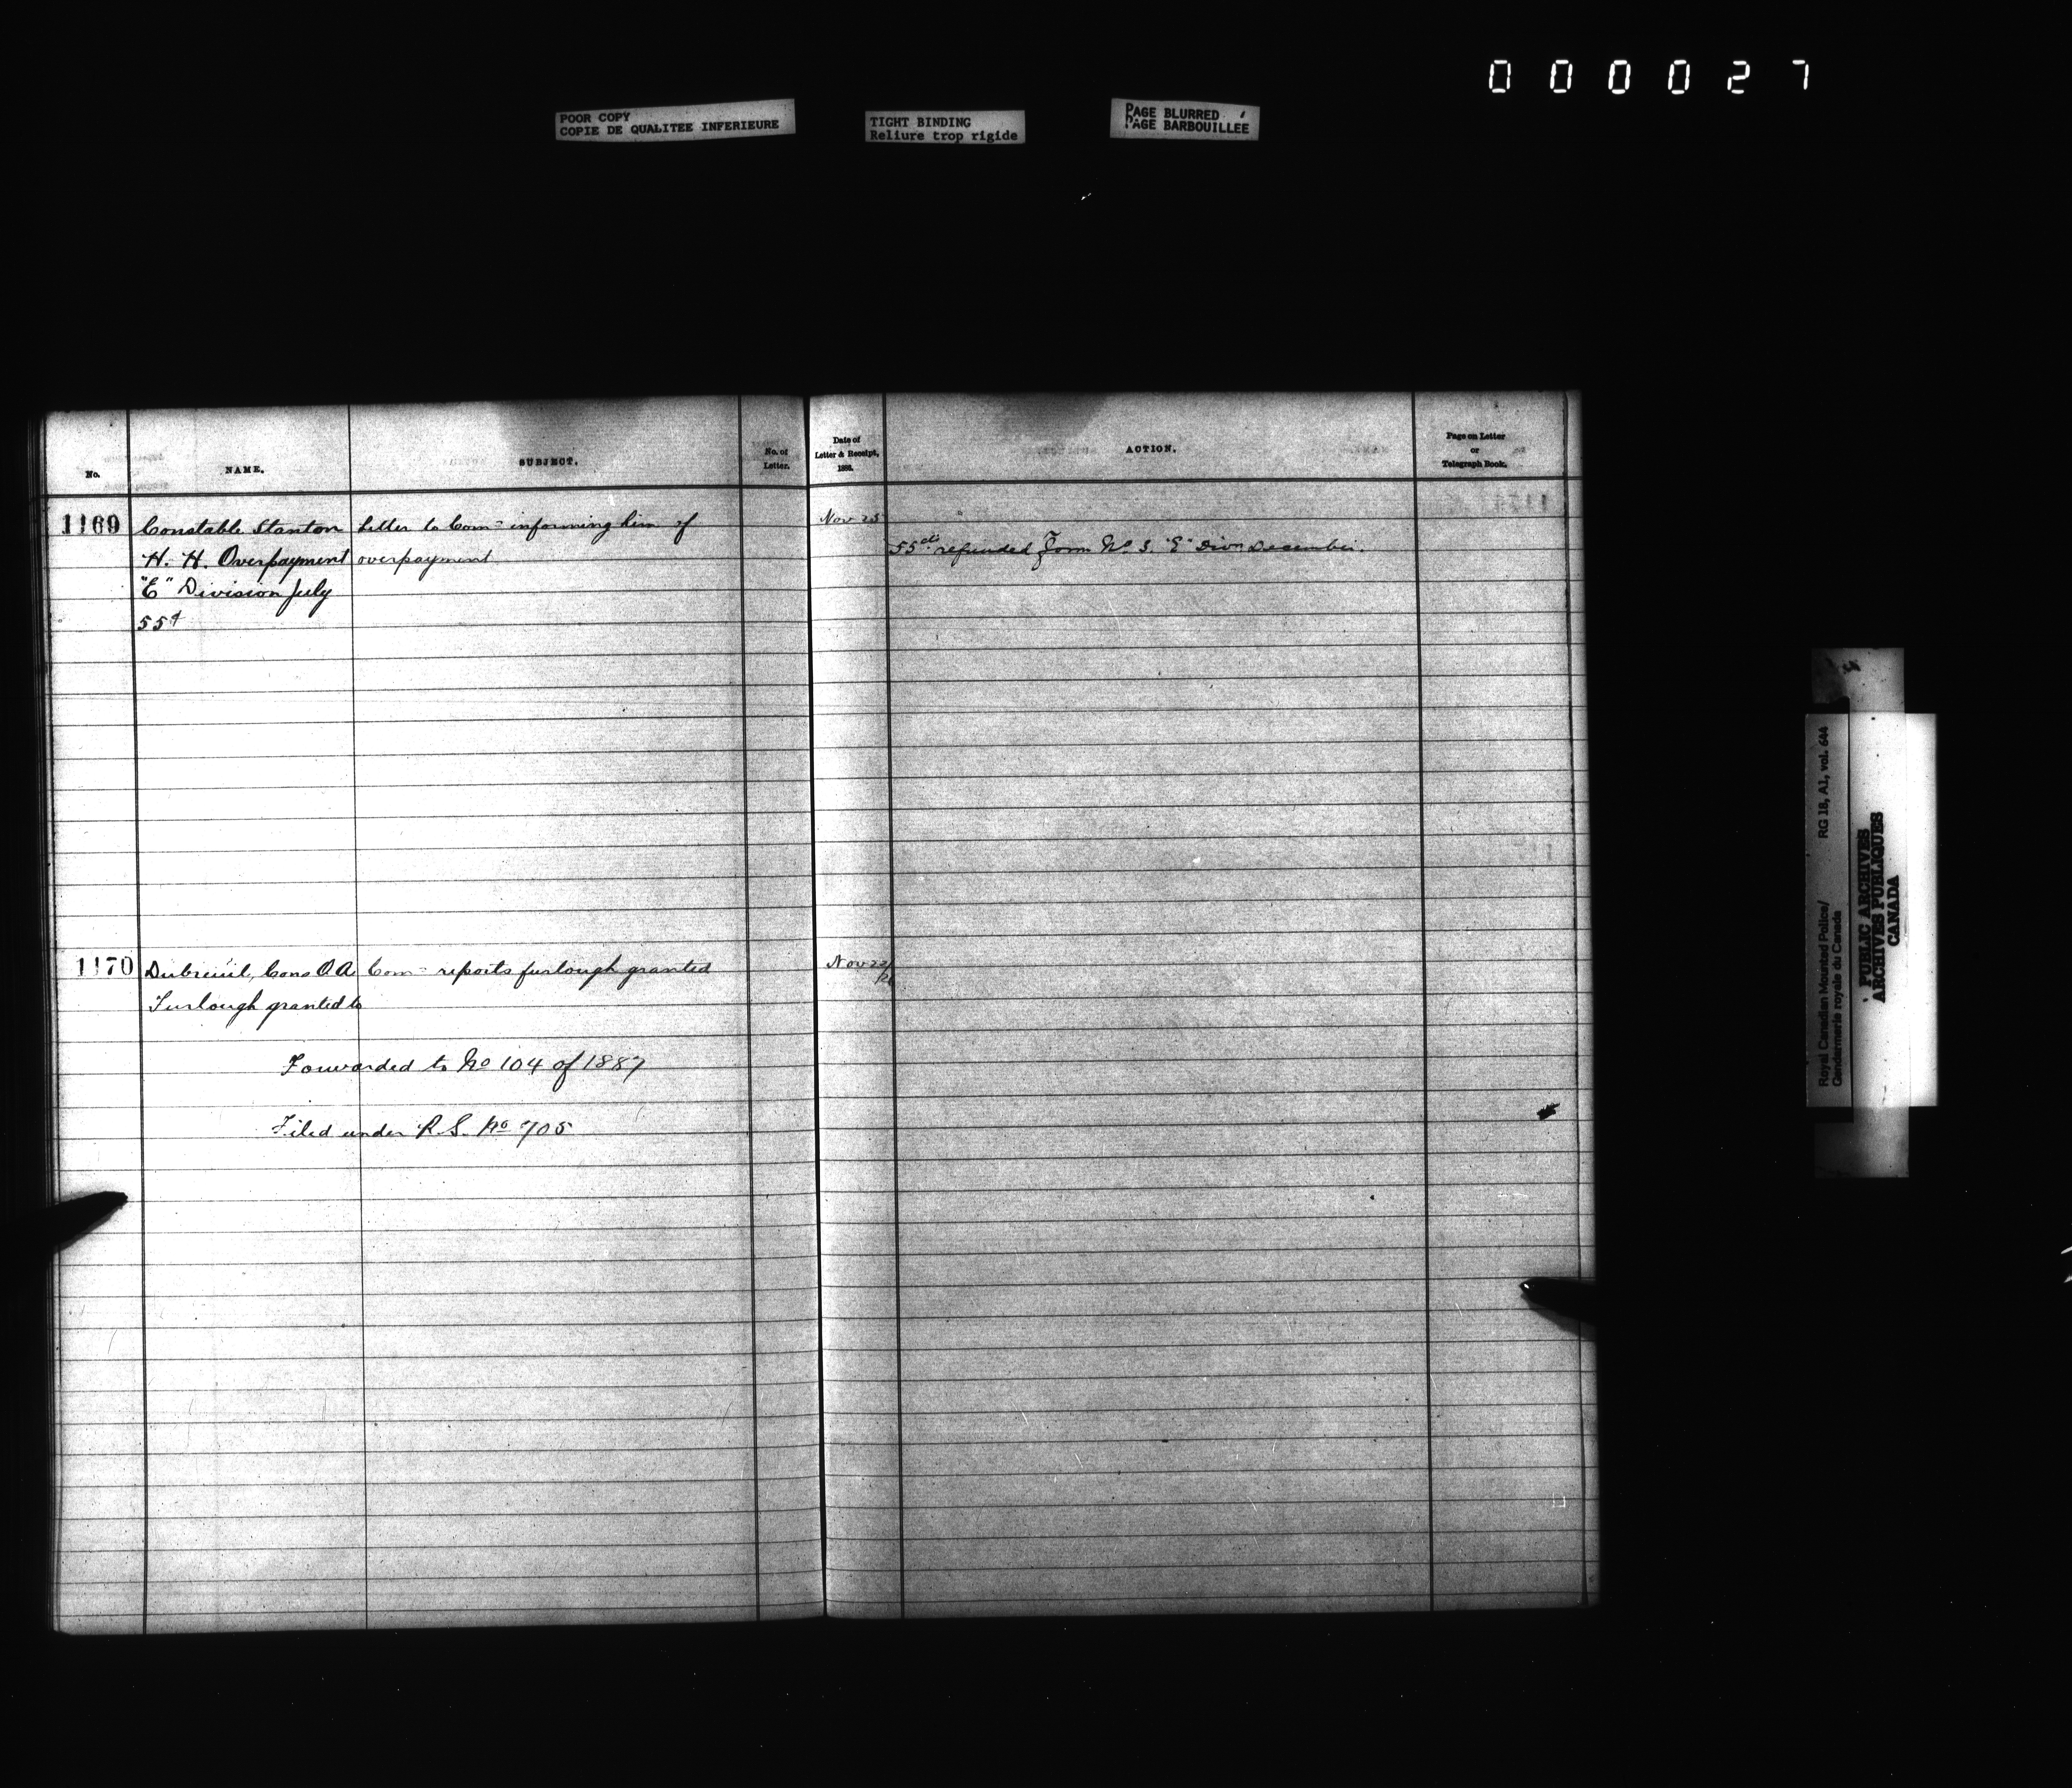 000027
POOR COPY
COPIE DE QUALITEE INFERIEURE
TIGHT BINDING
Reliure trop rigide
PAGE BLURRED
PAGE BARBOUILLEE
No.
NAME.
SUBJECT.
No. of
Letter.
Date of
Letter & Receipt,
1886.
ACTION.
Page on Letter
or
Telegraph Book.
1169
Constable Stanton
H. H. Overpayment
"E" Division July
55¢
Letter to Comr informing him of
overpayment
Nov 25
55cts refunded Form No 3. "E" Divn December.
1170
Dubreuil, Cons O.A.
Furlough granted to
Comr reports furlough granted
Nov 22/
Forwarded to No 104 of 1887
Filed under R.S. No 705
Royal Canadian Mounted Police/ RG 18, A1, vol. 644
Gendarmerie royale du Canada
PUBLIC ARCHIVES
ARCHIVES PUBLIQUES
CANADA